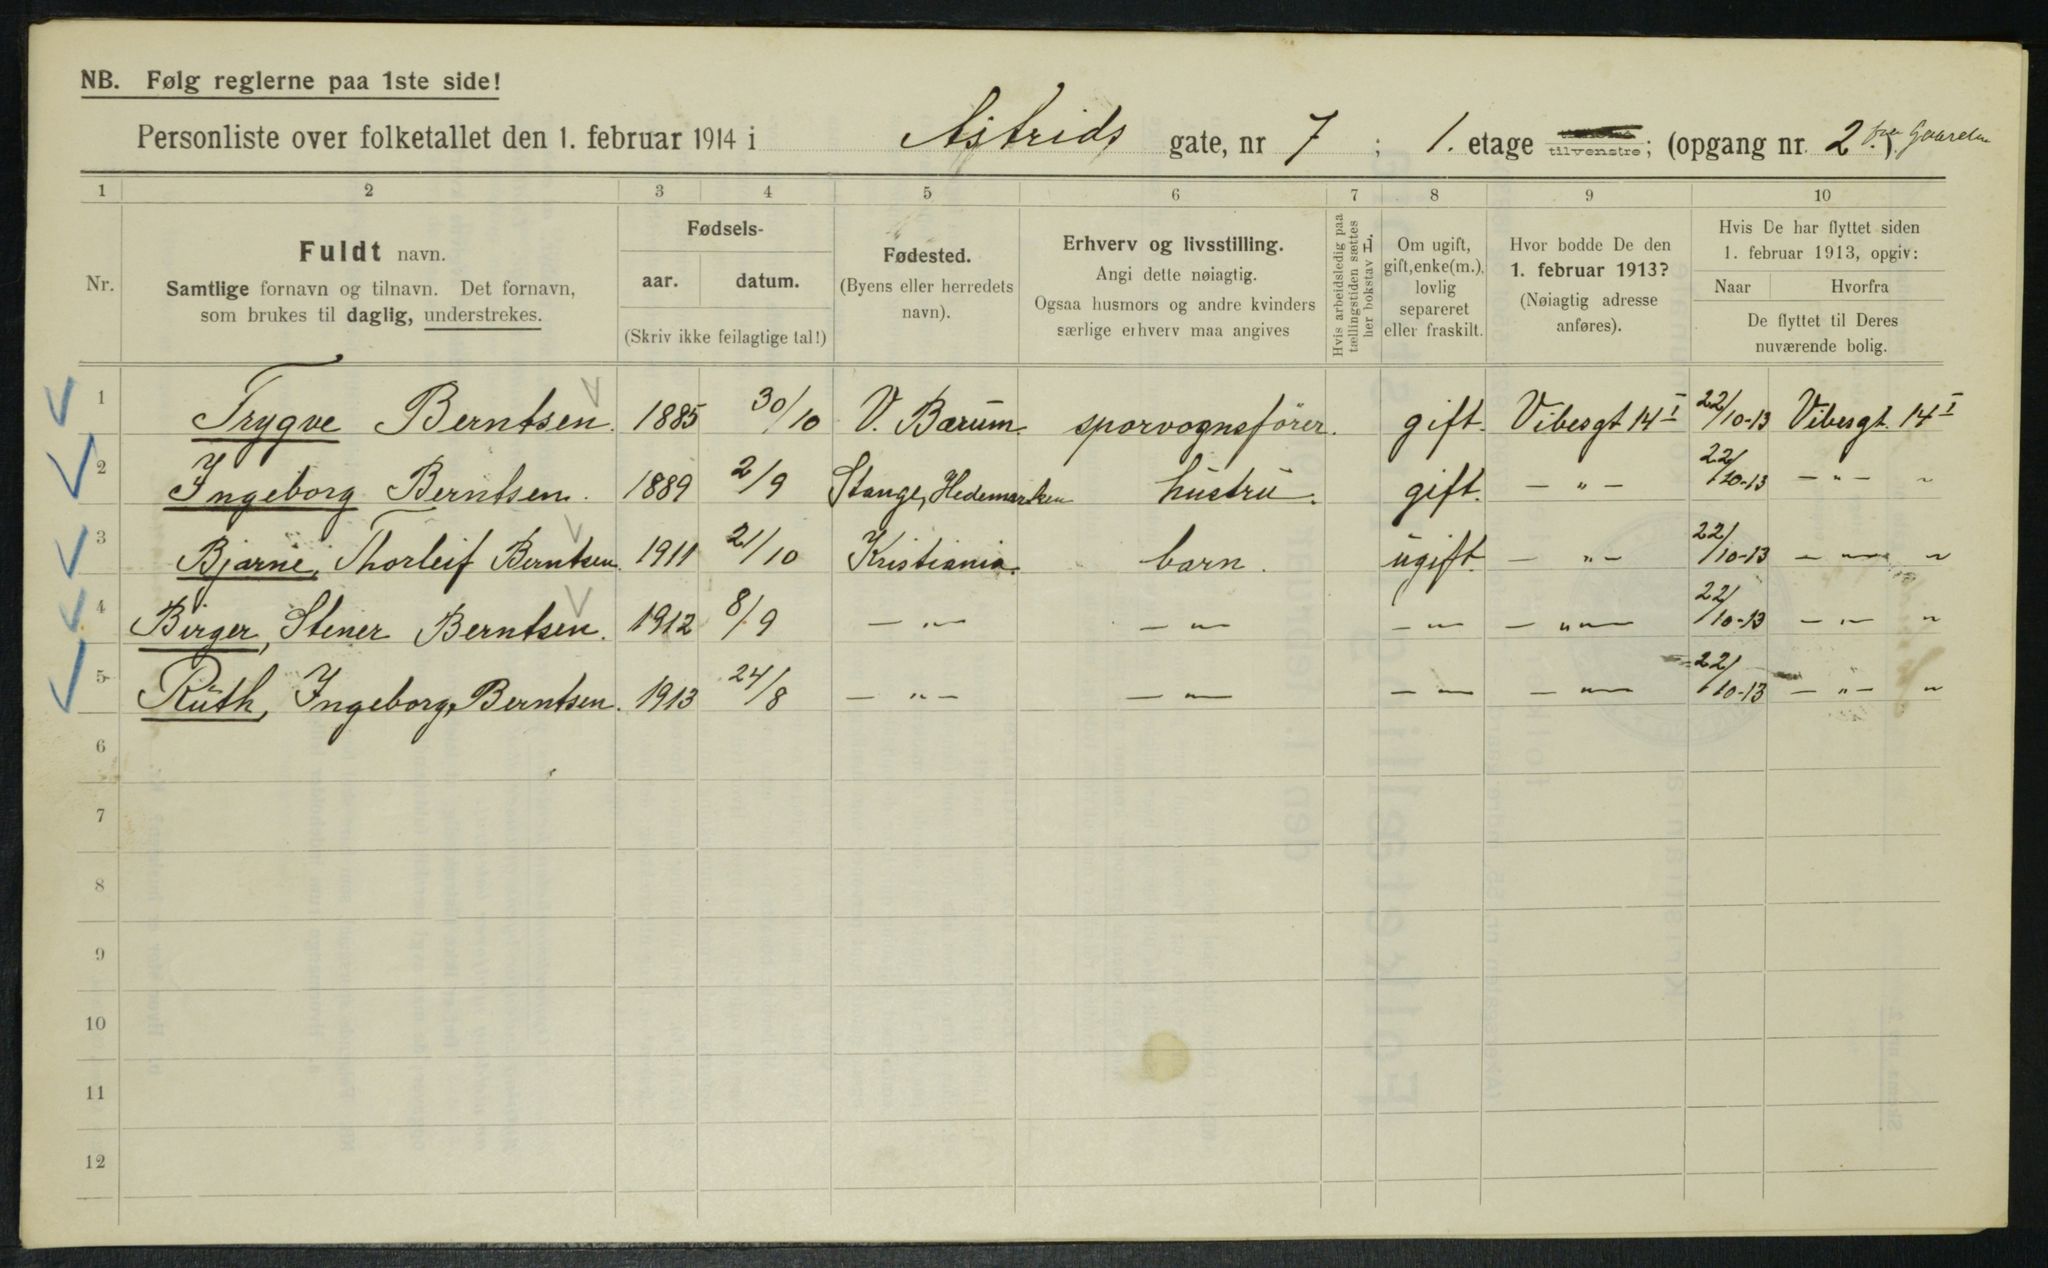 NB. Følg reglerne paa 1ste side!
Personliste over folketallet den 1. februar 1914 i Astrids gate, nr 7 ; 1. etage tilvenstre; (opgang nr. 2 fra Gaarden).
1 2 3 4 5 6 7 8 9 10
Nr.
Fuldt navn.
Samtlige fornavn og tilnavn. Det fornavn,
som brukes til daglig, understrekes.
Fødsels-
aar. datum.
(Skriv ikke feilagtige tal!)
Fødested.
(Byens eller herredets
navn).
Erhverv og livsstilling.
Angi dette nøiagtig.
Ogsaa husmors og andre kvinders
særlige erhverv maa angives
Hvis arbeidsledig paa
tællingstiden sættes
her bokstav L.
Om ugift,
gift, enke(m.),
lovlig
separeret
eller fraskilt.
Hvor bodde De den
1. februar 1913?
(Nøiagtig adresse
anføres).
Hvis De har flyttet siden
1. februar 1913, opgiv:
Naar Hvorfra
De flyttet til Deres
nuværende bolig.
1 Trygve Berntsen. 1885 30/10 V. Bærum. sporvognsfører. gift. Vibesgt 14 I 22/10-13 Vibesgt. 14 I
2 Ingeborg Berntsen. 1889 2/9 Stange, Hedemarken hustru. gift. — " — 22/10-13 — " — "
3 Bjarne, Thorleif Berntsen. 1911 21/10 Kristiania. barn. ugift. — " — 22/10-13 — " — "
4 Birger, Stener Berntsen. 1912 8/9 — " — — " — — " — — " — 22/10-13 — " — "
5 Ruth, Ingeborg, Berntsen. 1913 24/8 — " — — " — — " — — " — 22/10-13 — " — "
6
7
8
9
10
11
12